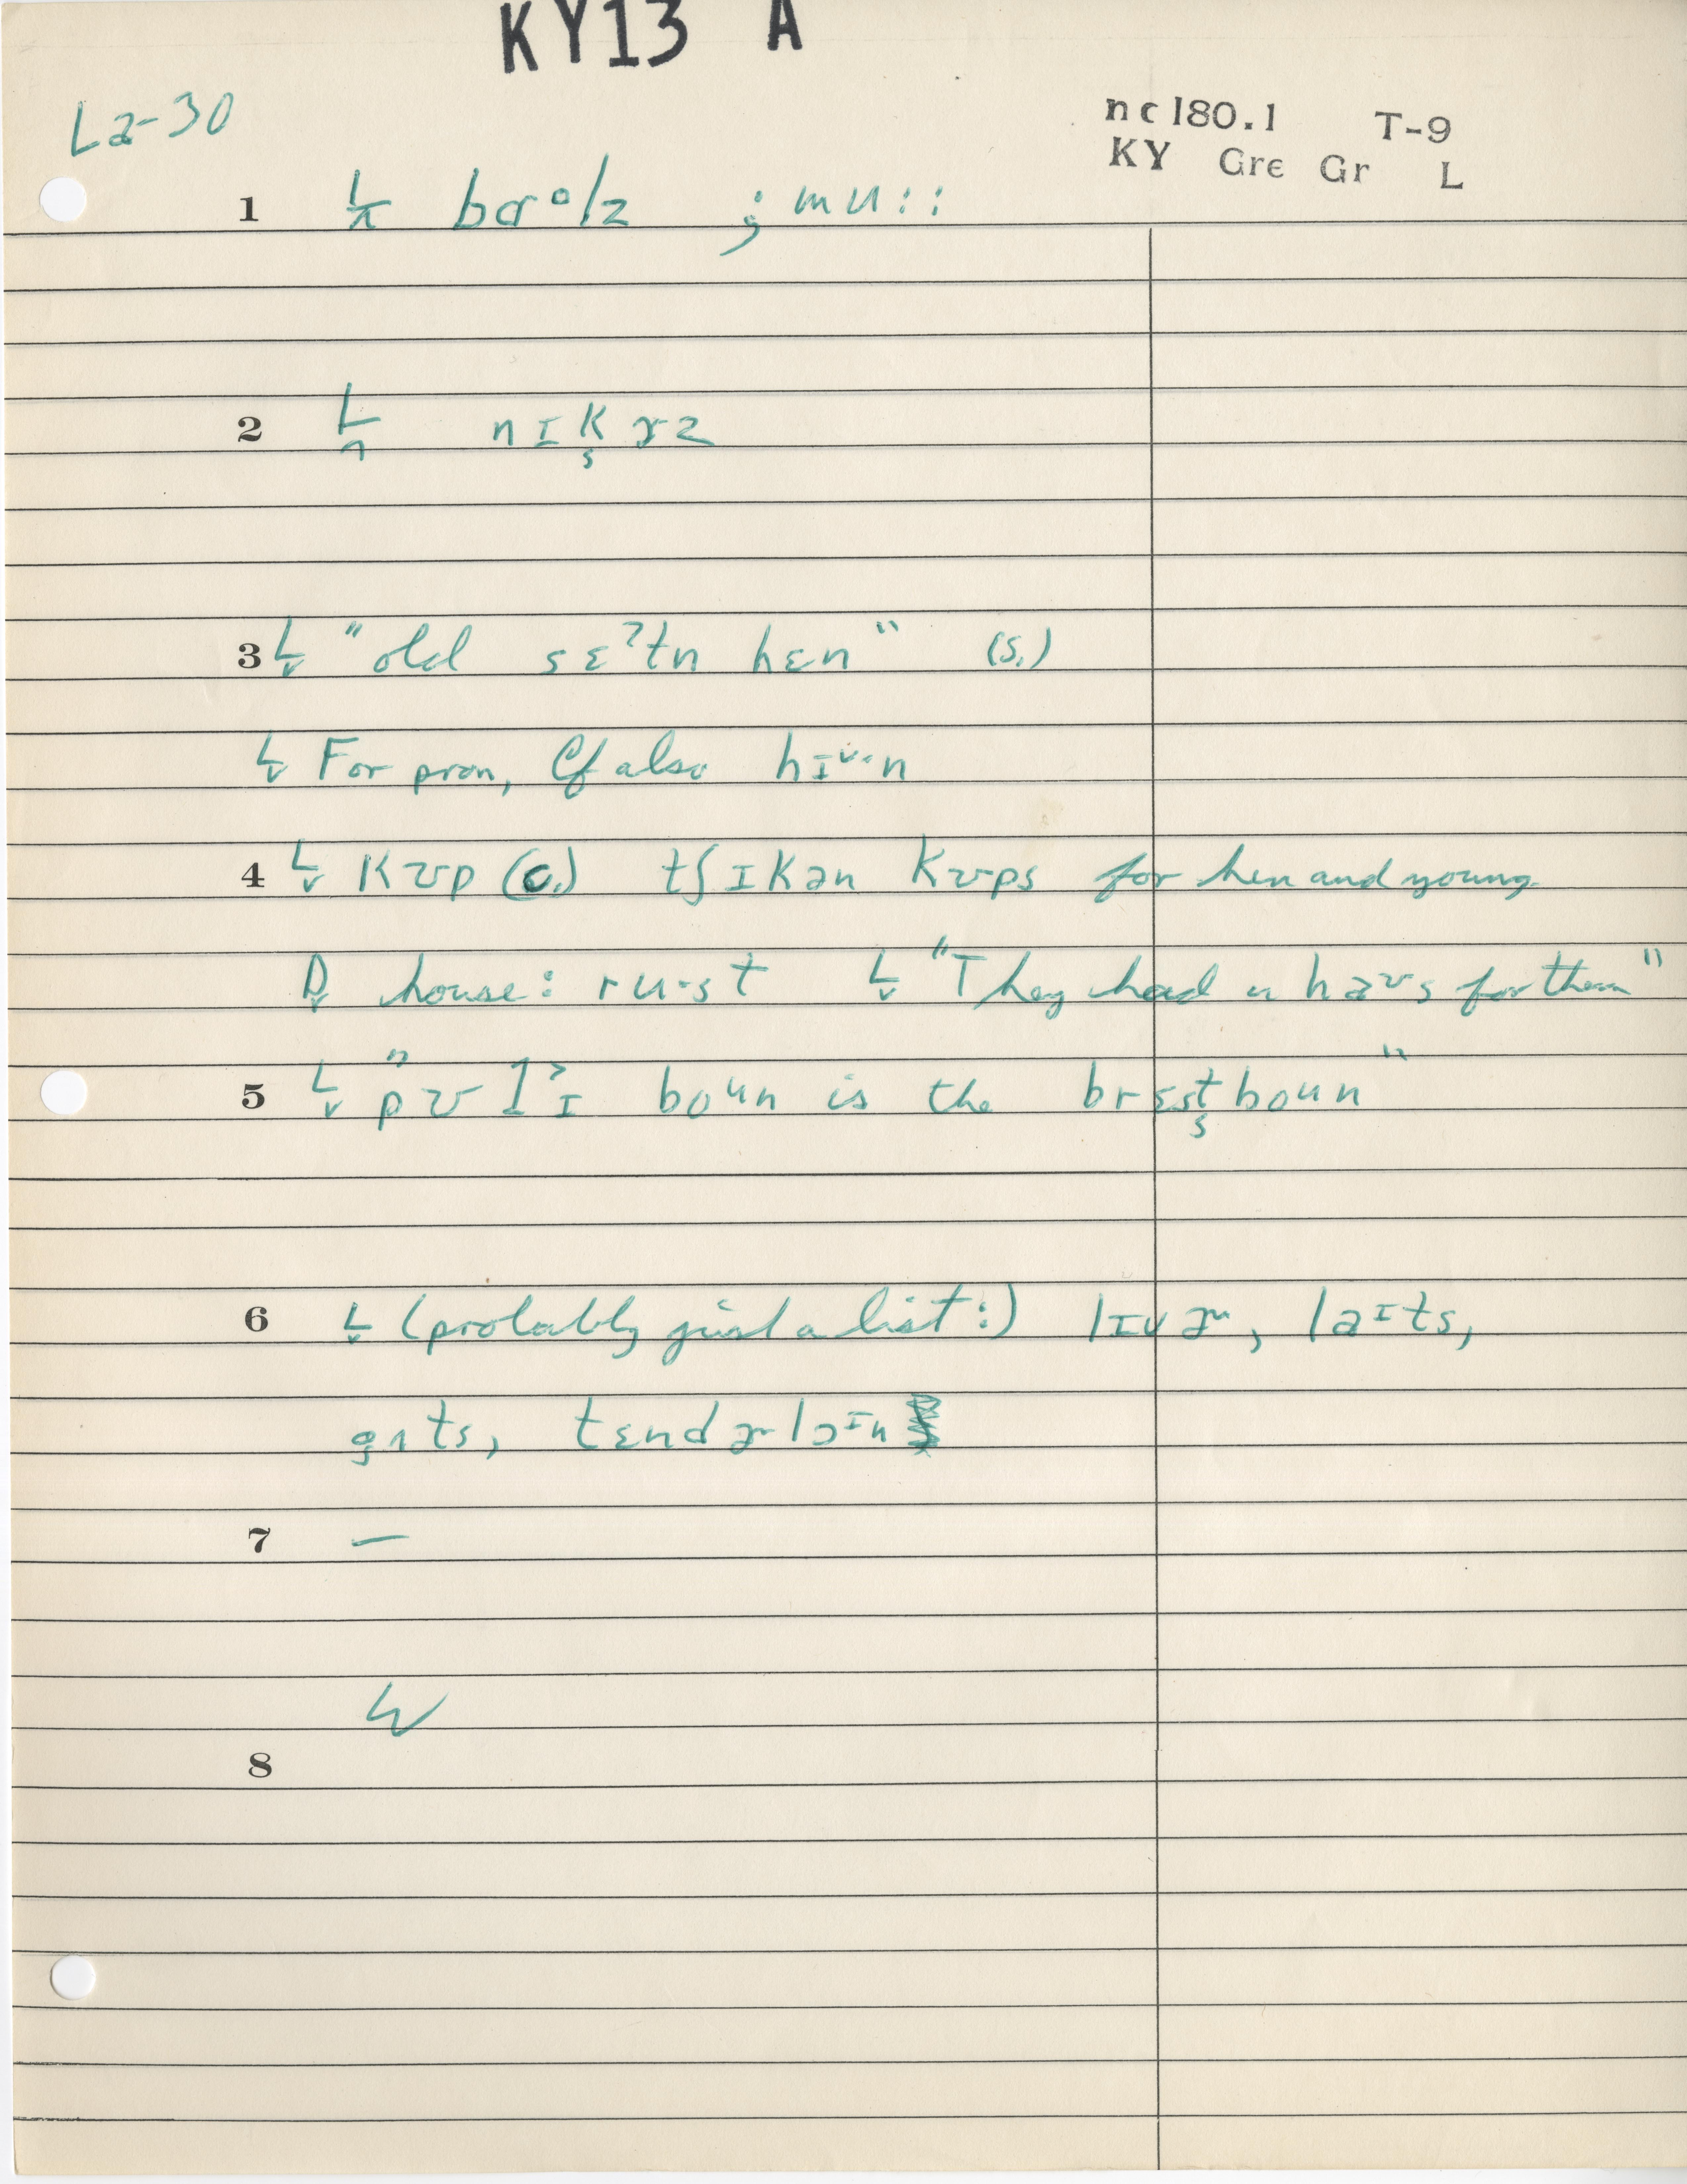 KY13 A
La-30
nc180.1 T-9
KY Gre Gr L
1 L bɑɚ°lz ; mu::
2 L nɪkɚz
3 L "old sɛˀtn hɛn" (s.)
L For pron, Cf also hɪᵛ·n
4 L kʊp (c.) tʃɪkən kʊps for hen and young
D house: ru·st L "They had a haᶷs for them"
5 L "pʊlˀɪ boun is the brɛst boun"
6 L (probably just a list:) lɪvɚ, laɪts,
gʌts, tɛndɚlɔɪn
7 —
8